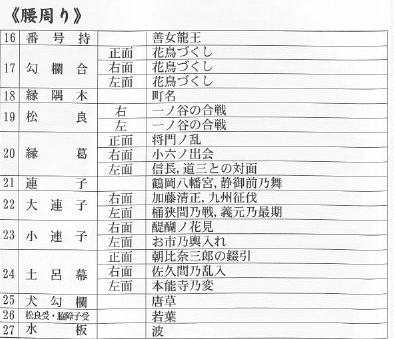 《腰周り》
16 番号持 善女龍王
17 勾欄合 正面 花鳥づくし
右面 花鳥づくし
左面 花鳥づくし
18 縁隅木 町名
19 松良 右 一ノ谷の合戦
左 一ノ谷の合戦
20 縁葛 正面 将門ノ乱
右面 小六ノ出会
左面 信長,道三との対面
21 連子 鶴岡八幡宮,静御前乃舞
22 大連子 右面 加藤清正,九州征伐
左面 桶狭間乃戦,義元乃最期
23 小連子 右面 醍醐ノ花見
左面 お市乃輿入れ
24 土呂幕 正面 朝比奈三郎の錣引
右面 佐久間乃乱入
左面 本能寺乃変
25 犬勾欄 唐草
26 松良受・脇障子受 若葉
27 水板 波